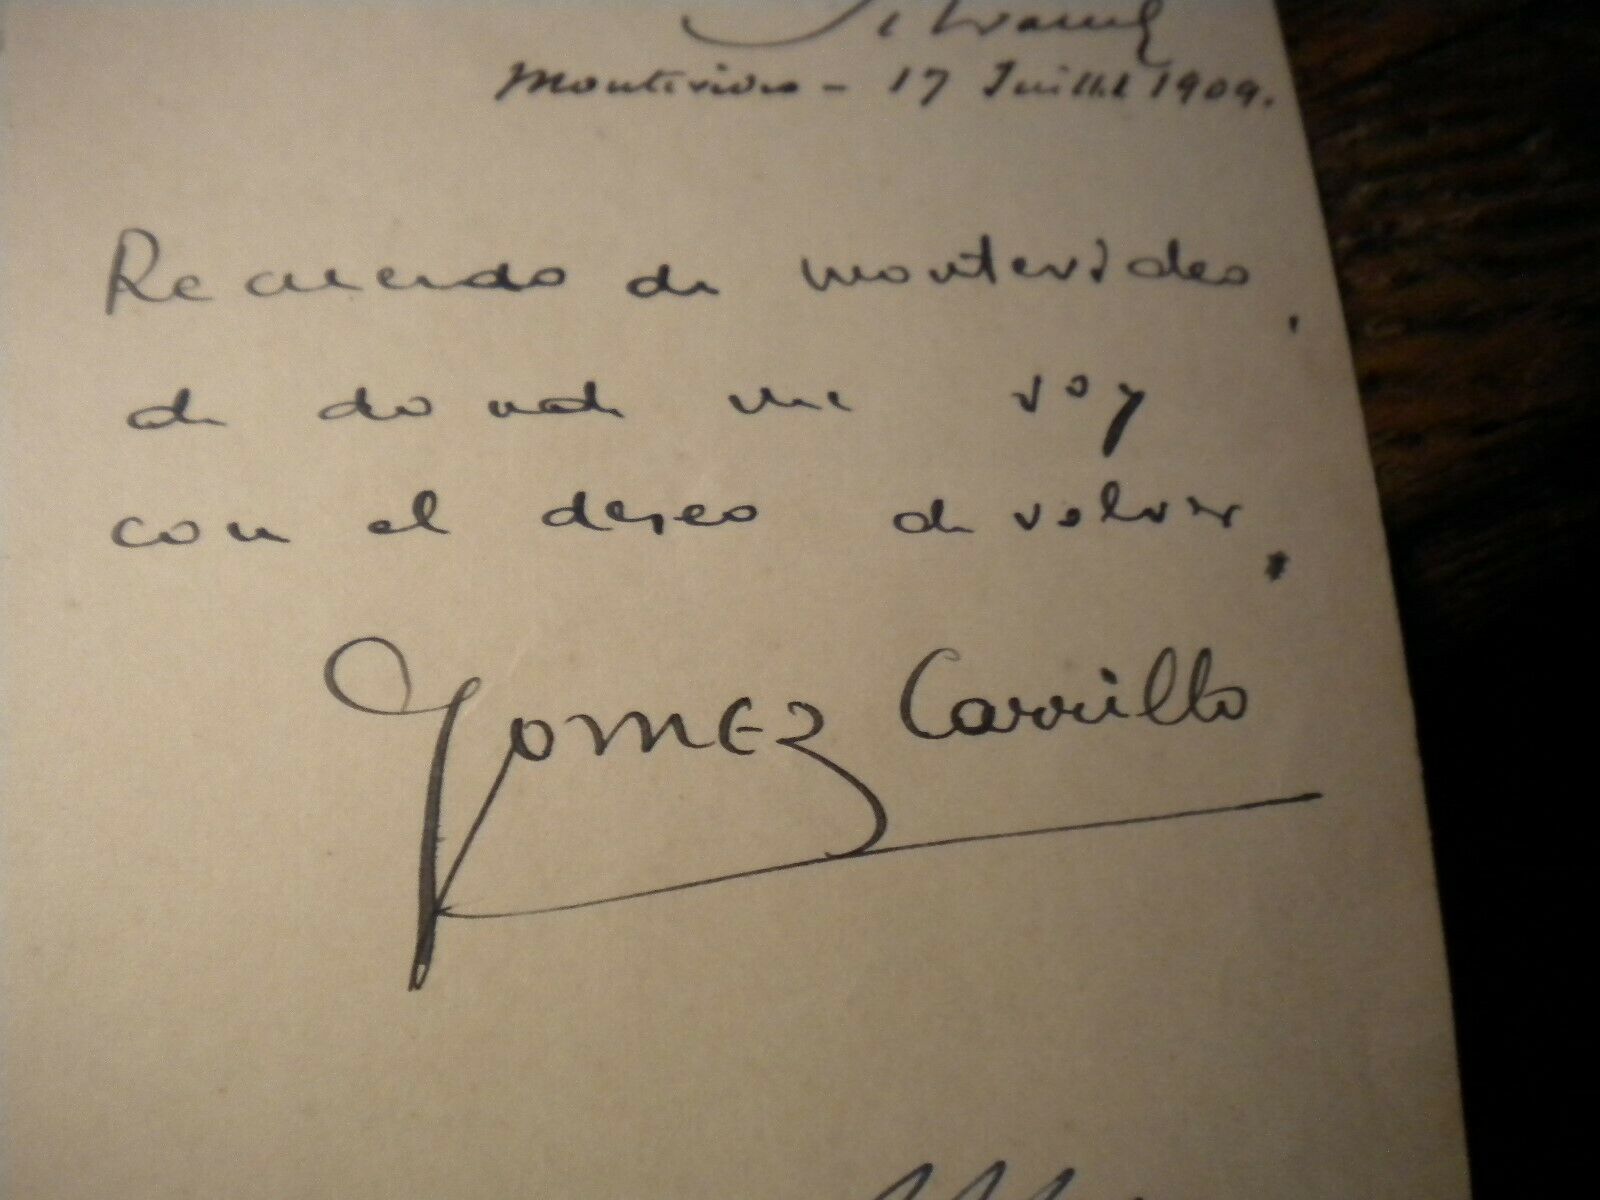 Montevideo - 17 Juillet 1909.
Recuerdo de Montevideo,
de donde me voy
con el deseo de volver.
Gomez Carrillo